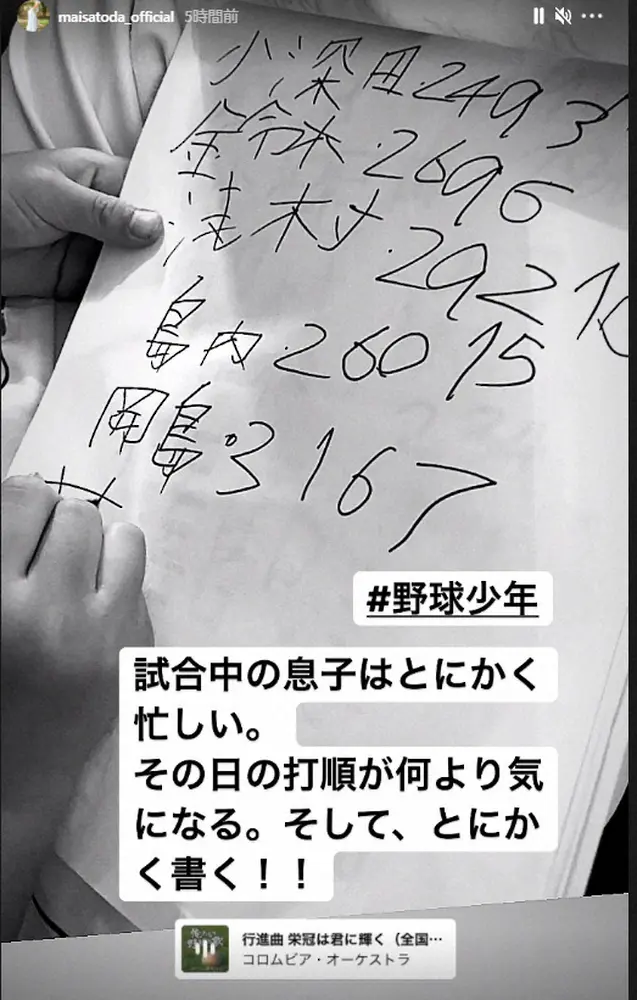 maisatoda_official 5時間前
小深田.249 3
鈴木.269 6
浅村.292 10
島内.260 15
岡島.316 7
#野球少年
試合中の息子はとにかく
忙しい。
その日の打順が何より気
になる。そして、とにか
く書く！！
行進曲 栄冠は君に輝く（全国…
コロムビア・オーケストラ